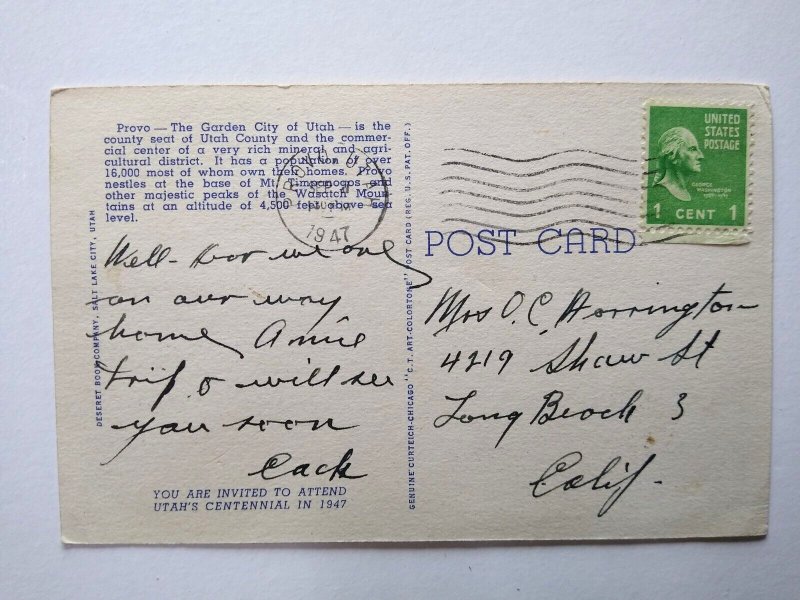 Provo — The Garden City of Utah — is the
county seat of Utah County and the commer-
cial center of a very rich mineral and agri-
cultural district. It has a population of over
16,000 most of whom own their homes. Provo
nestles at the base of Mt. Timpanogos and
other majestic peaks of the Wasatch Moun-
tains at an altitude of 4,500 feet above sea
level.
Well - here we are
on our way
home, a nice
trip & will see
you soon
YOU ARE INVITED TO ATTEND
UTAH'S CENTENNIAL IN 1947
DESERET BOOK COMPANY, SALT LAKE CITY, UTAH
GENUINE CURTEICH-CHICAGO "C.T. ART-COLORTONE" POST CARD (REG. U.S. PAT. OFF.)
PROVO UTAH
1947
UNITED
STATES
POSTAGE
GEORGE
WASHINGTON
1 CENT 1
POST CARD
Mrs O. C. Horrington
4219 Shaw St
Long Beach 3
Calif.